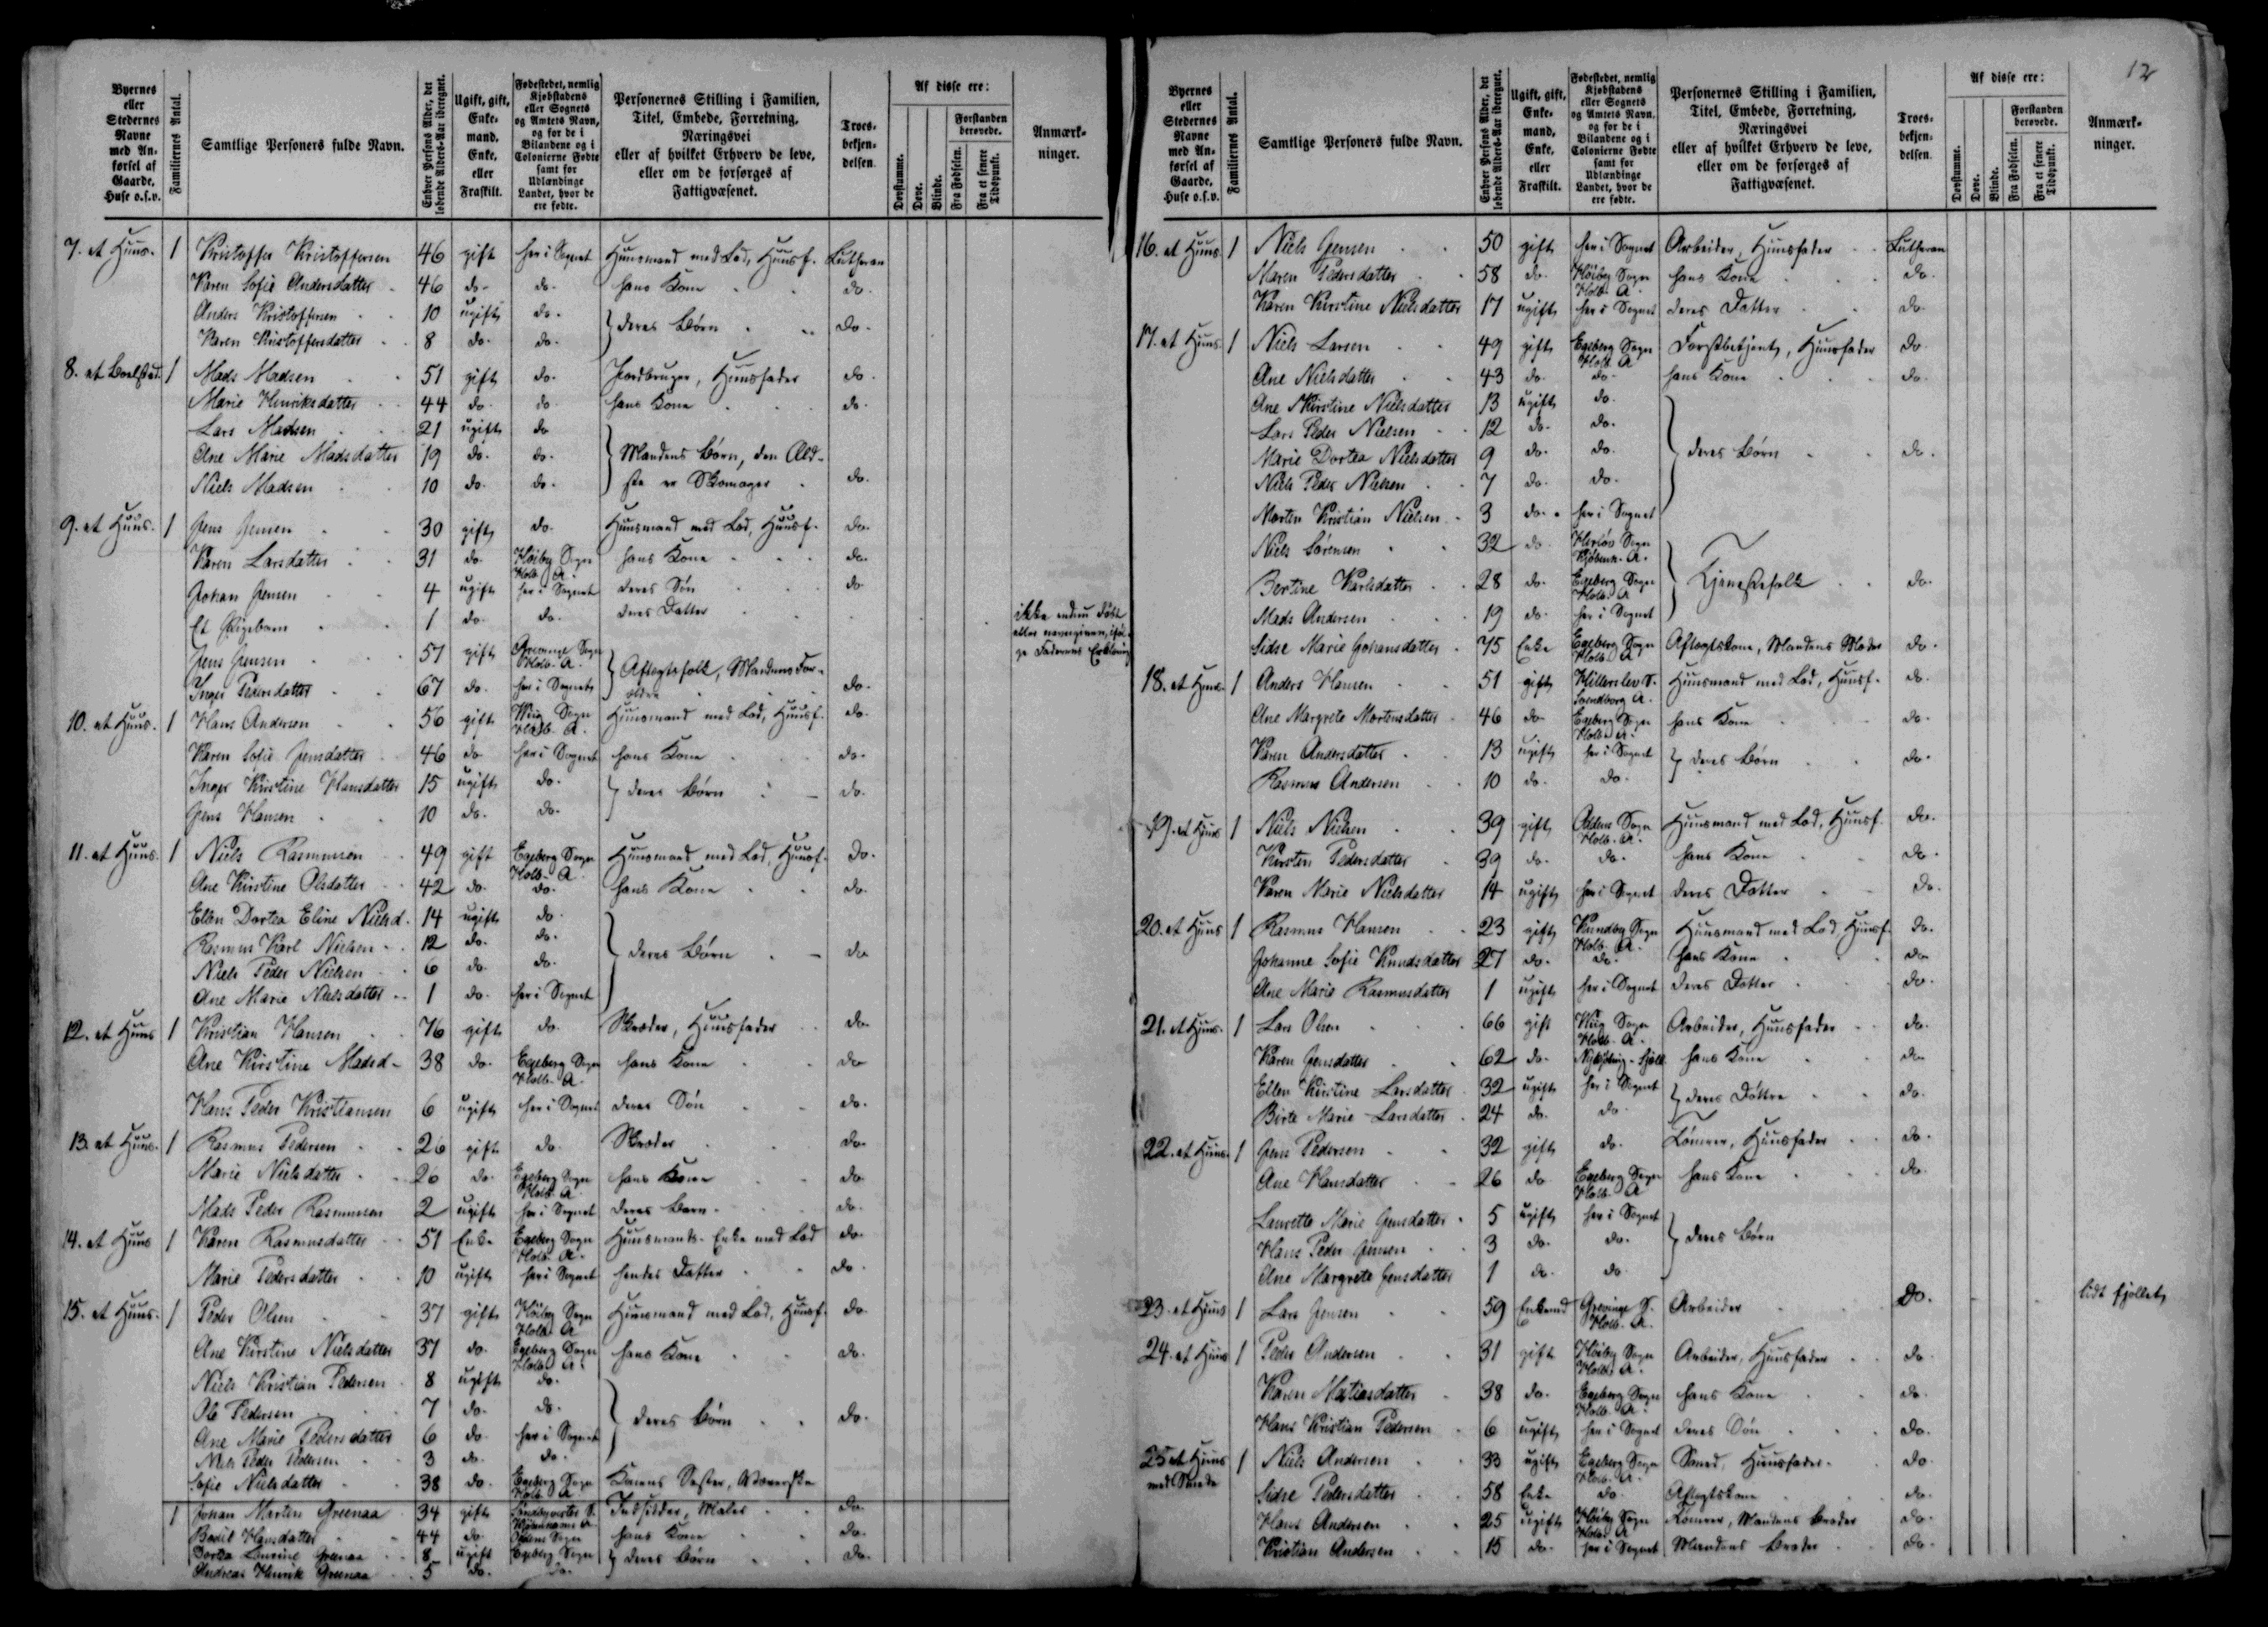 Byernes eller Stedernes Navne med Anførsel af Gaarde, Huse o.s.v. | Familiernes Antal. | Samtlige Personers fulde Navn. | Enhver Persons Alder, det løbende Alders-Aar iberegnet. | Ugift, gift, Enkemand, Enke, eller Fraskilt. | Fødestedet, nemlig Kjøbstadens eller Sognets og Amtets Navn, og for de i Bilandene og i Colonierne Fødte samt for Udlændinge Landet, hvor de ere fødte. | Personernes Stilling i Familien, Titel, Embede, Forretning, Næringsvei eller af hvilket Erhverv de leve, eller om de forsørges af Fattigvæsenet. | Troesbekjendelsen. | Af disse ere: Døvstumme. | Døve. | Blinde. | Forstanden berøvede. Fra Fødselen. | Fra et senere Tidspunkt. | Anmærkninger.
7. et Huus. 1 Kristoffer Kristoffersen 46 gift her i Sognet Huusmand med Lod, Huusf. Lutheran
Karen Sofie Andersdatter 46 do. do. hans Kone do.
Anders Kristoffersen 10 ugift do. } deres Børn do.
Karen Kristoffersdatter 8 do. do.
8. et Boelsted. 1 Mads Madsen 51 gift do. Jordbruger, Huusfader do.
Marie Henriksdatter 44 do. do. hans Kone do.
Lars Madsen 21 ugift do
Ane Marie Madsdatter 19 do. do. } Mandens Børn, den Æld-
Niels Madsen 10 do. do. ste er Skomager do.
9. et Huus. 1 Jens Jensen 30 gift do. Huusmand med Lod, Huusf. do.
Karen Larsdatter 31 do. Høiby Sogn Holb. A. hans Kone do.
Johan Jensen 4 ugift her i Sognet deres Søn do
Et Pigebarn 1 do. do. deres Datter ikke endnu døbt eller navngiven, iføl-ge Faderens Erklæring
Jens Jensen 57 gift Grevinge Sogn Holb. A. } Aftægtsfolk, Mandens For-
Inger Pedersdatter 67 do. her i Sognet ældre do.
10. et Huus. 1 Hans Andersen 56 gift Wiig Sogn Holb. A. Huusmand med Lod, Huusf. do.
Karen Sofie Jensdatter 46 do her i Sognet hans Kone do.
Inger Kirstine Hansdatter 15 ugift do. } deres Børn do.
Jens Hansen 10 do. do.
11. et Huus. 1 Niels Rasmussen 49 gift Egeberg Sogn Holb. A. Huusmand med Lod, Huusf. do.
Ane Kirstine Olsdatter 42 do. do. hans Kone do.
Ellen Dortea Eline Nielsd. 14 ugift do.
Rasmus Karl Nielsen 12 do. do. } deres Børn do
Niels Peder Nielsen 6 do. do.
Ane Marie Nielsdatter 1 do. her i Sognet
12. et Huus 1 Kristian Hansen 76 gift do. Skræder, Huusfader do.
Ane Kirstine Madsd. 38 do. Egeberg Sogn Holb. A. hans Kone do
Hans Peder Kristiansen 6 ugift her i Sognet deres Søn do.
13. et Huus. 1 Rasmus Pedersen 26 gift do. Skræder do.
Marie Nielsdatter 26 do. Egeberg Sogn Holb. A. hans Kone do
Mads Peder Rasmussen 2 ugift her i Sognet deres Barn do.
14. et Huus 1 Karen Rasmusdatter 51 Enke Egeberg Sogn Holb. A. Huusmands-Enke med Lod do.
Marie Pedersdatter 10 ugift her i Sognet hendes Datter do.
15. et Huus. 1 Peder Olsen 37 gift Høiby Sogn Holb. A Huusmand med Lod, Huusf. do
Ane Kirstine Nielsdatter 37 do. Egeberg Sogn Holb. A. hans Kone do.
Niels Kristian Pedersen 8 ugift do.
Ole Pedersen 7 do. do. } deres Børn do.
Ane Marie Pedersdatter 6 do. her i Sognet
Niels Peder Pedersen 3 do. do.
Sofie Nielsdatter 38 do. Egeberg Sogn Holb. A Konens Søster, Væverske
1 Johan Martin Greenaa 34 gift Kjøbenhavns A. Indsidder, Maler do.
Bodil Hansdatter 44 do. Odens Sogn hans Kone do.
Dortea Laurine Greenaa 8 ugift Egeberg Sogn } deres Børn do.
Andreas Henrik Greenaa 5 do. do.
12
Byernes eller Stedernes Navne med Anførsel af Gaarde, Huse o.s.v. | Familiernes Antal. | Samtlige Personers fulde Navn. | Enhver Persons Alder, det løbende Alders-Aar iberegnet. | Ugift, gift, Enkemand, Enke, eller Fraskilt. | Fødestedet, nemlig Kjøbstadens eller Sognets og Amtets Navn, og for de i Bilandene og i Colonierne Fødte samt for Udlændinge Landet, hvor de ere fødte. | Personernes Stilling i Familien, Titel, Embede, Forretning, Næringsvei eller af hvilket Erhverv de leve, eller om de forsørges af Fattigvæsenet. | Troesbekjendelsen. | Af disse ere: Døvstumme. | Døve. | Blinde. | Forstanden berøvede. Fra Fødselen. | Fra et senere Tidspunkt. | Anmærkninger.
16. et Huus. 1 Niels Jensen 50 gift her i Sognet Arbeider, Huusfader Lutheran
Maren Pedersdatter 58 do. Høiby Sogn Holb. A. hans Kone do.
Karen Kirstine Nielsdatter 17 ugift her i Sognet deres Datter do.
17. et Huus. 1 Niels Larsen 49 gift Egeberg Sogn Holb. A Forstbetjent, Huusfader do.
Ane Nielsdatter 43 do. do. hans Kone do.
Ane Kirstine Nielsdatter 13 ugift do.
Lars Peder Nielsen 12 do. do.
Marie Dortea Nielsdatter 9 do. do. } deres Børn do.
Niels Peder Nielsen 7 do. do.
Morten Kristian Nielsen 3 do. her i Sognet
Niels Sørensen 32 do. Herløv Sogn Kjøbenh. A.
Bertine Karlsdatter 28 do. Egeberg Sogn Holb. A } Tjenestefolk do.
Mads Andersen 19 do. her i Sognet
Sidse Marie Johansdatter 75 Enke Egeberg Sogn Holb. A Aftægtskone, Mandens Moder do.
18. et Huus. 1 Anders Hansen 51 gift Hillerslev S. Svendborg A. Huusmand med Lod, Huusf. do.
Ane Margrete Mortensdatter 46 do Egeberg Sogn Holb. A. hans Kone do.
Karen Andersdatter 13 ugift her i Sognet } deres Børn do.
Rasmus Andersen 10 do. do.
19. et Huus 1 Niels Nielsen 39 gift Odens Sogn Holb. A. Huusmand med Lod, Huusf. do.
Kirsten Pedersdatter 39 do. do. hans Kone do.
Karen Marie Nielsdatter 14 ugift her i Sognet deres Datter do.
20. et Huus 1 Rasmus Hansen 23 gift Kundby Sogn Holb. A. Huusmand med Lod, Huusf. do.
Johanne Sofie Knudsdatter 27 do. do. hans Kone do
Ane Marie Rasmusdatter 1 ugift her i Sognet deres Datter do.
21. et Huus. 1 Lars Olsen 66 gift Wiig Sogn Holb. A. Arbeider, Huusfader do.
Karen Jensdatter 62 do. Nykjøbing-Sjæll. hans Kone do
Ellen Kirstine Larsdatter 32 ugift her i Sognet } deres Døttre do.
Birte Marie Larsdatter 24 do. do.
22. et Huus. 1 Jens Pedersen 32 gift do. Tømrer, Huusfader do.
Ane Hansdatter 26 do Egeberg Sogn Holb. A hans Kone do.
Laurette Marie Jensdatter 5 ugift her i Sognet
Hans Peder Jensen 3 do. do. } deres Børn
Ane Margrete Jensdatter 1 do. do
23. et Huus 1 Lars Jensen 59 Enkemd Grevinge S. Holb. A. Arbeider do. lidt fjollet
24. et Huus 1 Peder Andersen 31 gift Høiby Sogn Holb. A. Arbeider, Huusfader do
Karen Matiasdatter 38 do. Egeberg Sogn Holb. A. hans Kone do.
Hans Kristian Pedersen 6 ugift her i Sognet deres Søn do.
25 et Huus med Smedie 1 Niels Andersen 33 ugift Egeberg Sogn Holb. A. Smed, Huusfader do
Sidse Pedersdatter 58 Enke do. Aftægtskone do.
Hans Andersen 25 ugift Høiby Sogn Holb. A Tømrer, Mandens Broder do.
Kristian Andersen 15 do. her i Sognet Mandens Broder do.